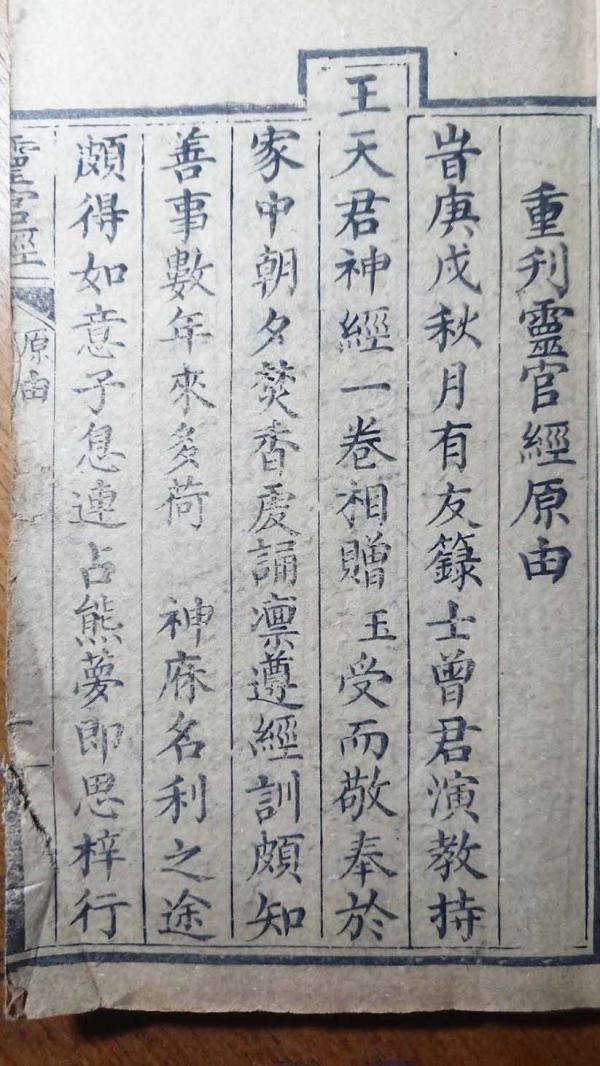 重刋靈官經原由
旹庚戌秋月有友籙士曾君演教持
王天君神經一卷相贈玉受而敬奉於
家中朝夕焚香虔誦凛遵經訓頗知
善事數年來多荷　神庥名利之途
頗得如意子息連占熊夢即思梓行
靈官經　原由